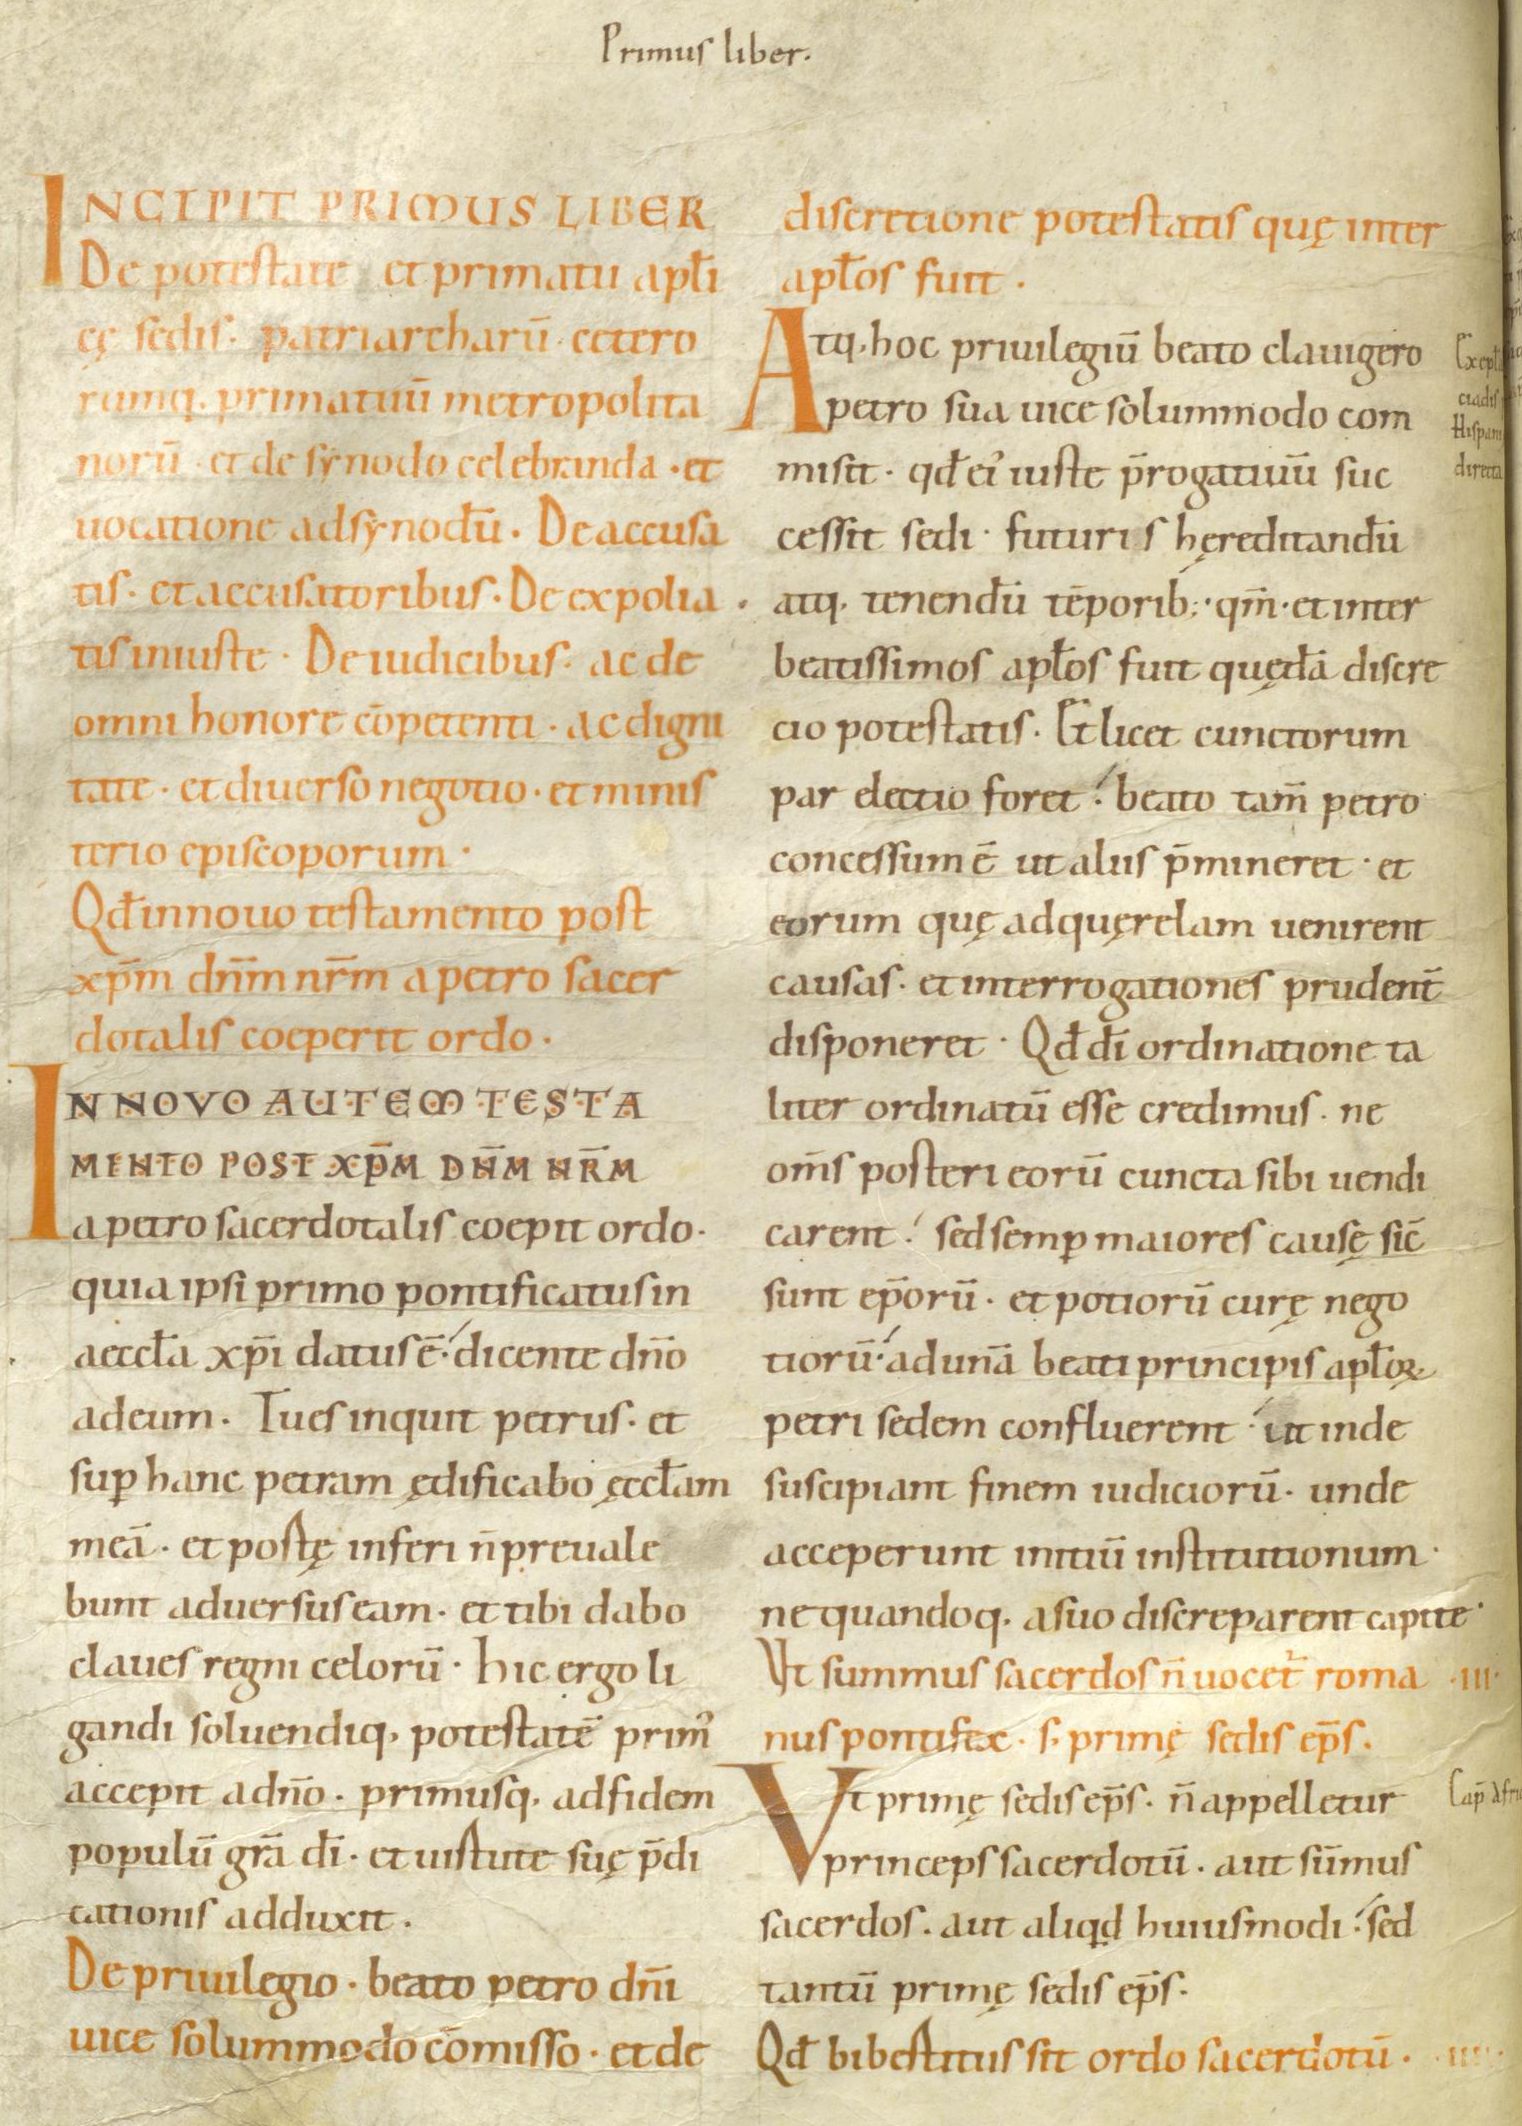 Primus liber.
INCIPIT PRIMUS LIBER
De potestate et primatu apłi
cę sedis· patriarcharū· cetero
rumq· primatuū metropolita
norū· et de synodo celebranda· et
uocatione ad synodū· De accusa
tis· et accusatoribus· De expolia
tis iniuste· De iudicibus· ac de
omni honore cōpetenti· ac digni
tate· et diuerso negotio· et minis
terio episcoporum·
Qđ in nouo testamento post
xp̄m dn̄m nr̄m a petro sacer
dotalis coeperit ordo·
IN NOVO AUTEM TESTA
MENTO POST XP̄M DN̄M NR̄M
a petro sacerdotalis coepit ordo·
quia ipsi primo pontificatus in
aeccła xp̄i datus ē· dicente dn̄o
ad eum· Tu es inquit petrus· et
sup̱ hanc petram ędificabo ęccłam
meā· et portę inferi n̄ preuale
bunt aduersus eam· et tibi dabo
claues regni celorū· Hic ergo li
gandi soluendiq· potestatē prim᾿
accepit a dn̄o· primusq· ad fidem
populū grā dī· et uirtute suę p̄di
cationis adduxit·
De priuilegio· beato petro dn̄i
uice solummodo cōmisso· et de
discretione potestatis quę inter
apłos fuit·
Atq· hoc priuilegiū beato clauigero
petro sua uice solummodo com
misit· qđ ei᾿ iuste p̄rogatiuū suc
cessit sedi· futuris hęreditandū
atq· tenendū tēporib;· qm̄· et inter
beatissimos apłos fuit quędā discre
cio potestatis· Et licet cunctorum
par electio foret· beato tam̄ petro
concessum ē ut aliis p̄mineret· et
eorum quę ad quęrelam uenirent
causas· et interrogationes prudent̄
disponeret· Qđ dī ordinatione ta
liter ordinatū esse credimus· ne
om̄s posteri eorū cuncta sibi uendi
carent· sed semp̱ maiores causę sic̄
sunt ep̄orū· et potiorū curę nego
tiorū· ad unā beati principis apłoꝝ
petri sedem confluerent· ut inde
suscipiant finem iudiciorū· unde
acceperunt initiū institutionum·
ne quandoq· a suo discreparent capite·
Vt summus sacerdos n̄ uocet̄ roma ·III·
nus pontifex· s· primę sedis ep̄s·
Vt primę sedis ep̄s· n̄ appelletur
princeps sacerdotū· aut sūmus
sacerdos· aut aliqđ huiusmodi· sed
tantū primę sedis ep̄s·
Qđ bibertitus sit ordo sacerdotū· ·IIII·
Hispani
directa
Cap̄ Afri